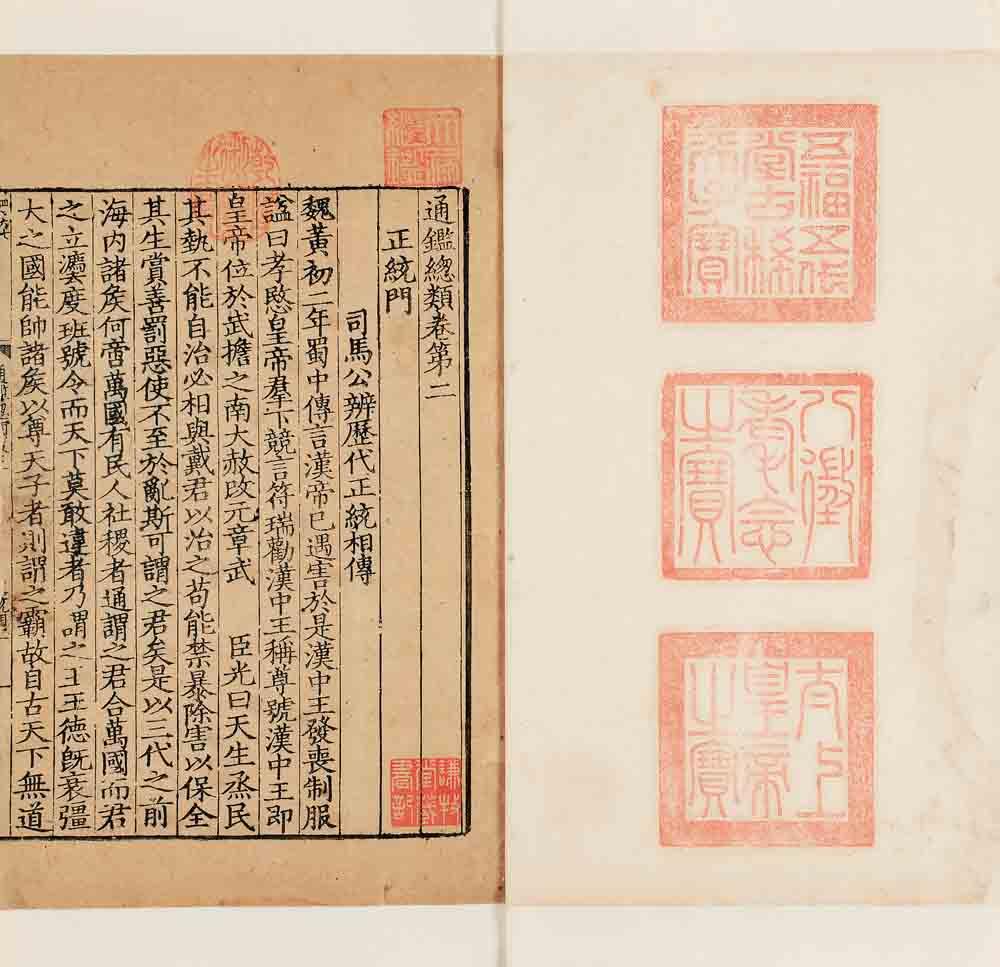 五福五代
堂古稀
天子寶
八徵
耄念
之寶
太上
皇帝
之寶
天祿
繼鑑
通鑑總類卷第二
正統門
謙牧
堂藏
書記
司馬公辨歷代正統相傳
魏黃初二年蜀中傳言漢帝已遇害於是漢中王發喪制服
諡曰孝愍皇帝羣下競言符瑞勸漢中王稱尊號漢中王即
皇帝位於武擔之南大赦改元章武　臣光曰天生烝民
其埶不能自治必相與戴君以治之苟能禁暴除害以保全
其生賞善罰惡使不至於亂斯可謂之君矣是以三代之前
海内諸矦何啻萬國有民人社稷者通謂之君合萬國而君
之立灋度班號令而天下莫敢違者乃謂之王王德旣衰彊
大之國能帥諸矦以尊天子者則謂之霸故自古天下無道